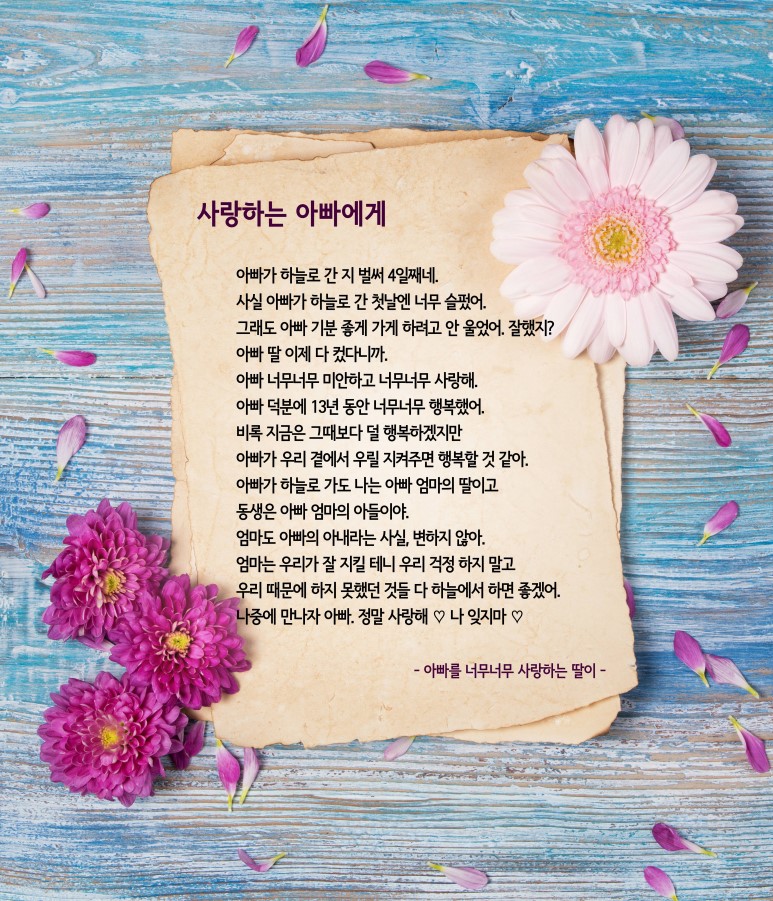 사랑하는 아빠에게
아빠가 하늘로 간 지 벌써 4일째네.
사실 아빠가 하늘로 간 첫날엔 너무 슬펐어.
그래도 아빠 기분 좋게 가게 하려고 안 울었어. 잘했지?
아빠 딸 이제 다 컸다니까.
아빠 너무너무 미안하고 너무너무 사랑해.
아빠 덕분에 13년 동안 너무너무 행복했어.
비록 지금은 그때보다 덜 행복하겠지만
아빠가 우리 곁에서 우릴 지켜주면 행복할 것 같아.
아빠가 하늘로 가도 나는 아빠 엄마의 딸이고
동생은 아빠 엄마의 아들이야.
엄마도 아빠의 아내라는 사실, 변하지 않아.
엄마는 우리가 잘 지킬 테니 우리 걱정 하지 말고
우리 때문에 하지 못했던 것들 다 하늘에서 하면 좋겠어.
나중에 만나자 아빠. 정말 사랑해 ♡ 나 잊지마 ♡
- 아빠를 너무너무 사랑하는 딸이 -